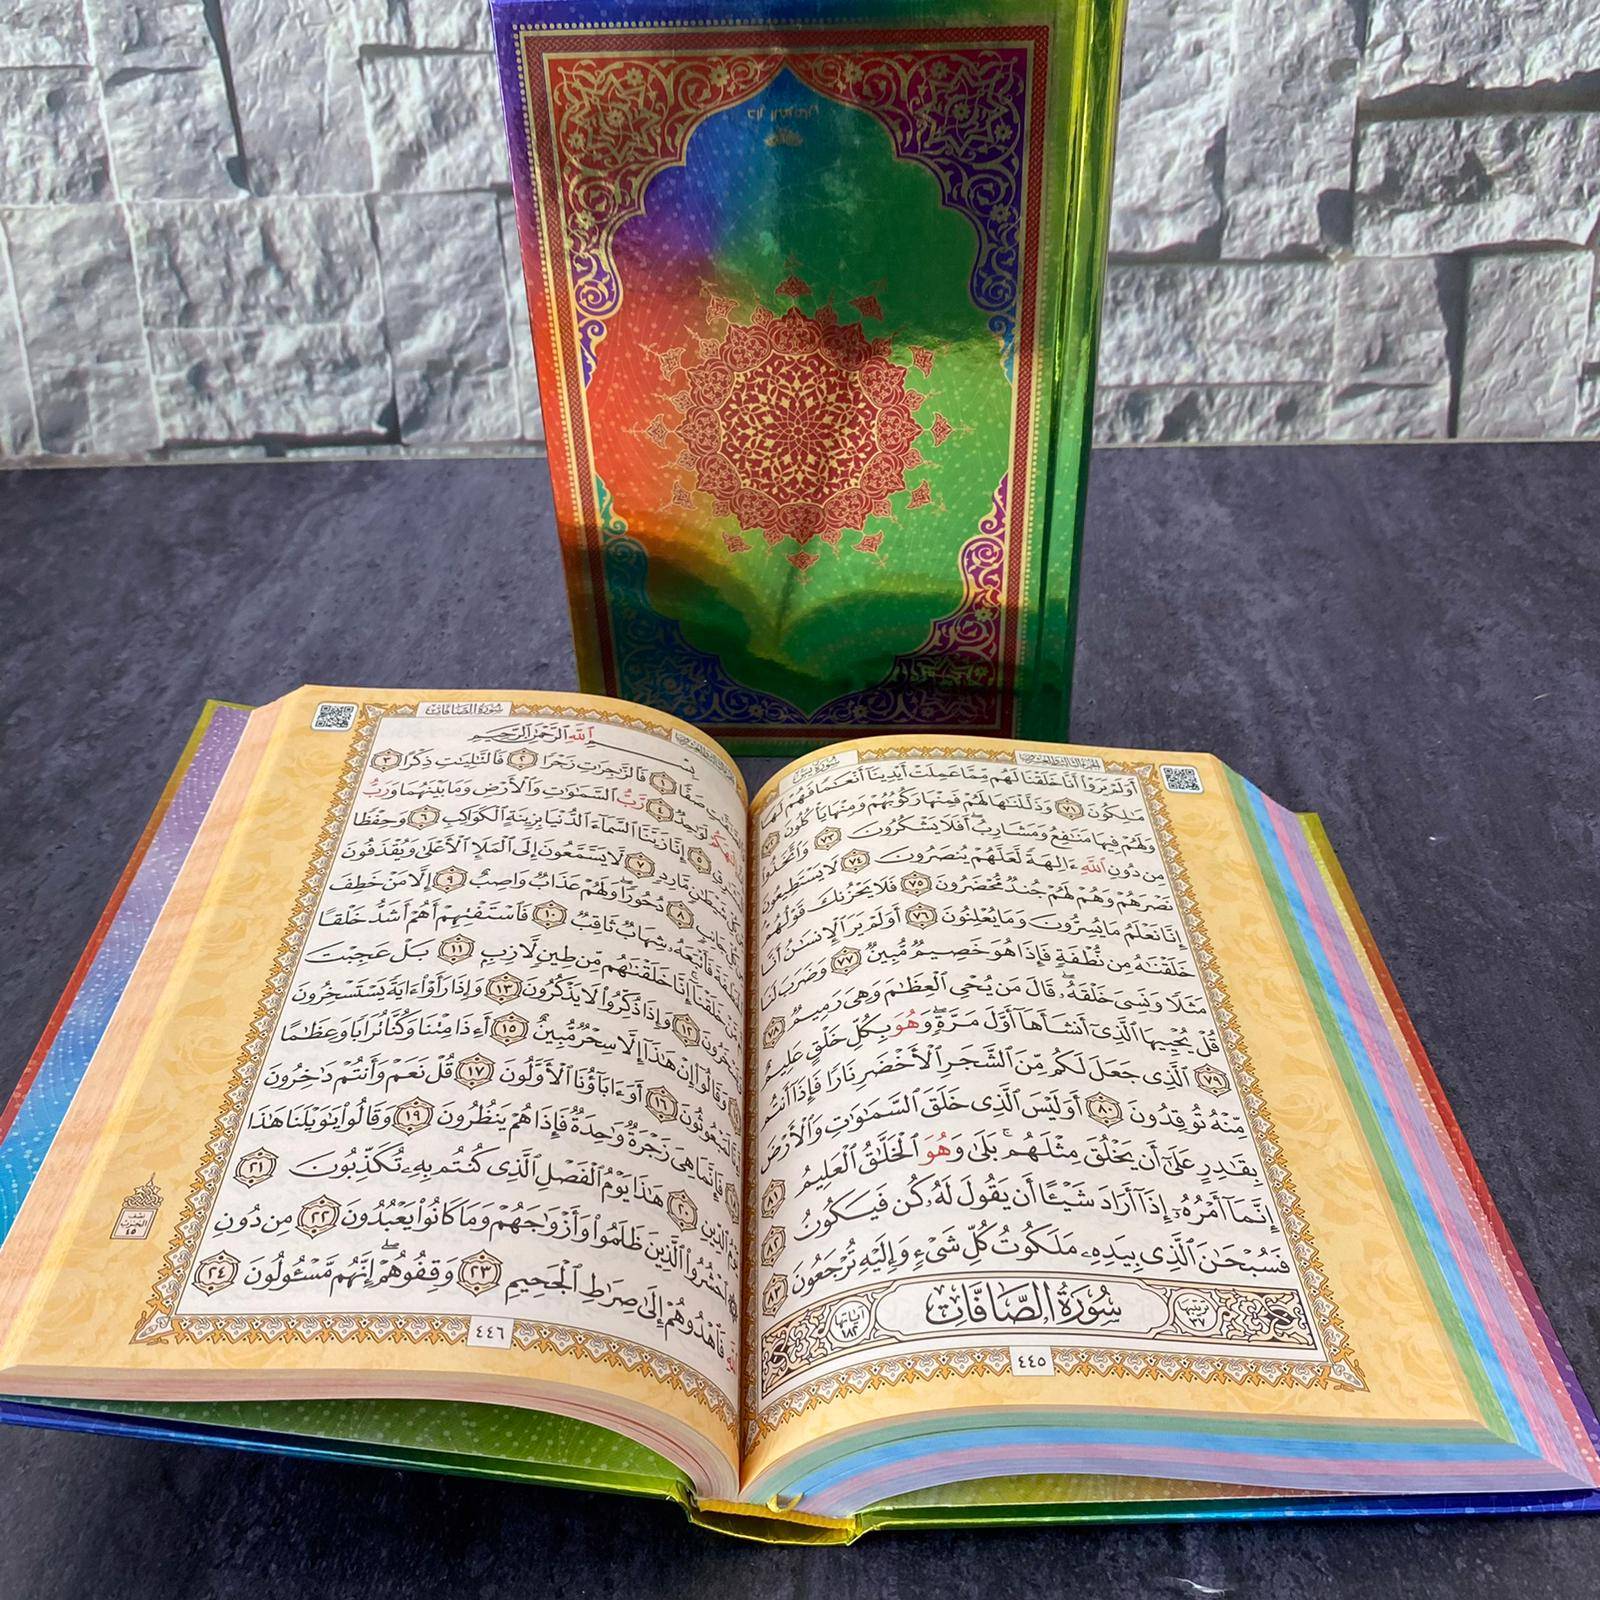 دار المعرفة
سُورَةُ يسٓ
الجزء الثالث والعشرون
أَوَلَمْ يَرَوْا۟ أَنَّا خَلَقْنَا لَهُم مِّمَّا عَمِلَتْ أَيْدِينَآ أَنْعَـٰمًا فَهُمْ لَهَا
مَـٰلِكُونَ ٧١ وَذَلَّلْنَـٰهَا لَهُمْ فَمِنْهَا رَكُوبُهُمْ وَمِنْهَا يَأْكُلُونَ ٧٢
وَلَهُمْ فِيهَا مَنَـٰفِعُ وَمَشَارِبُ ۖ أَفَلَا يَشْكُرُونَ ٧٣ وَٱتَّخَذُوا۟
مِن دُونِ ٱللَّهِ ءَالِهَةً لَّعَلَّهُمْ يُنصَرُونَ ٧٤ لَا يَسْتَطِيعُونَ
نَصْرَهُمْ وَهُمْ لَهُمْ جُندٌ مُّحْضَرُونَ ٧٥ فَلَا يَحْزُنكَ قَوْلُهُمْ ۘ
إِنَّا نَعْلَمُ مَا يُسِرُّونَ وَمَا يُعْلِنُونَ ٧٦ أَوَلَمْ يَرَ ٱلْإِنسَـٰنُ أَنَّا
خَلَقْنَـٰهُ مِن نُّطْفَةٍ فَإِذَا هُوَ خَصِيمٌ مُّبِينٌ ٧٧ وَضَرَبَ لَنَا
مَثَلًا وَنَسِىَ خَلْقَهُۥ ۖ قَالَ مَن يُحْىِ ٱلْعِظَـٰمَ وَهِىَ رَمِيمٌ ٧٨
قُلْ يُحْيِيهَا ٱلَّذِىٓ أَنشَأَهَآ أَوَّلَ مَرَّةٍ ۖ وَهُوَ بِكُلِّ خَلْقٍ عَلِيمٌ
٧٩ ٱلَّذِى جَعَلَ لَكُم مِّنَ ٱلشَّجَرِ ٱلْأَخْضَرِ نَارًا فَإِذَآ أَنتُم
مِّنْهُ تُوقِدُونَ ٨٠ أَوَلَيْسَ ٱلَّذِى خَلَقَ ٱلسَّمَـٰوَٰتِ وَٱلْأَرْضَ
بِقَـٰدِرٍ عَلَىٰٓ أَن يَخْلُقَ مِثْلَهُم ۚ بَلَىٰ وَهُوَ ٱلْخَلَّـٰقُ ٱلْعَلِيمُ ٨١
إِنَّمَآ أَمْرُهُۥٓ إِذَآ أَرَادَ شَيْـًٔا أَن يَقُولَ لَهُۥ كُن فَيَكُونُ ٨٢
فَسُبْحَـٰنَ ٱلَّذِى بِيَدِهِۦ مَلَكُوتُ كُلِّ شَىْءٍ وَإِلَيْهِ تُرْجَعُونَ ٨٣
ترتيبها ٣٧ سُورَةُ الصَّافَّات آياتها ١٨٢
٤٤٥
الجزء الثالث والعشرون
سُورَةُ الصَّافَّات
بِسْمِ ٱللَّهِ ٱلرَّحْمَـٰنِ ٱلرَّحِيمِ
صَفًّا ١ فَٱلزَّٰجِرَٰتِ زَجْرًا ٢ فَٱلتَّـٰلِيَـٰتِ ذِكْرًا ٣
إِلَـٰهَكُمْ لَوَٰحِدٌ ٤ رَّبُّ ٱلسَّمَـٰوَٰتِ وَٱلْأَرْضِ وَمَا بَيْنَهُمَا وَرَبُّ
٥ إِنَّا زَيَّنَّا ٱلسَّمَآءَ ٱلدُّنْيَا بِزِينَةٍ ٱلْكَوَاكِبِ ٦ وَحِفْظًا
شَيْطَـٰنٍ مَّارِدٍ ٧ لَّا يَسَّمَّعُونَ إِلَى ٱلْمَلَإِ ٱلْأَعْلَىٰ وَيُقْذَفُونَ
جَانِبٍ ٨ دُحُورًا ۖ وَلَهُمْ عَذَابٌ وَاصِبٌ ٩ إِلَّا مَنْ خَطِفَ
ٱلْخَطْفَةَ فَأَتْبَعَهُۥ شِهَابٌ ثَاقِبٌ ١٠ فَٱسْتَفْتِهِمْ أَهُمْ أَشَدُّ خَلْقًا
مَّنْ خَلَقْنَآ ۚ إِنَّا خَلَقْنَـٰهُم مِّن طِينٍ لَّازِبٍ ١١ بَلْ عَجِبْتَ
وَيَسْخَرُونَ ١٢ وَإِذَا ذُكِّرُوا۟ لَا يَذْكُرُونَ ١٣ وَإِذَا رَأَوْا۟ ءَايَةً يَسْتَسْخِرُونَ
وَقَالُوٓا۟ إِنْ هَـٰذَآ إِلَّا سِحْرٌ مُّبِينٌ ١٥ أَءِذَا مِتْنَا وَكُنَّا تُرَابًا وَعِظَـٰمًا
لَمَبْعُوثُونَ ١٦ أَوَءَابَآؤُنَا ٱلْأَوَّلُونَ ١٧ قُلْ نَعَمْ وَأَنتُمْ دَٰخِرُونَ
فَإِنَّمَا هِىَ زَجْرَةٌ وَٰحِدَةٌ فَإِذَا هُمْ يَنظُرُونَ ١٩ وَقَالُوا۟ يَـٰوَيْلَنَا هَـٰذَا
يَوْمُ ٱلدِّينِ ٢٠ هَـٰذَا يَوْمُ ٱلْفَصْلِ ٱلَّذِى كُنتُم بِهِۦ تُكَذِّبُونَ ٢١
ٱحْشُرُوا۟ ٱلَّذِينَ ظَلَمُوا۟ وَأَزْوَٰجَهُمْ وَمَا كَانُوا۟ يَعْبُدُونَ ٢٢ مِن دُونِ
ٱللَّهِ فَٱهْدُوهُمْ إِلَىٰ صِرَٰطِ ٱلْجَحِيمِ ٢٣ وَقِفُوهُمْ ۖ إِنَّهُم مَّسْـُٔولُونَ ٢٤
نصف
الحزب
٤٥
٤٤٦